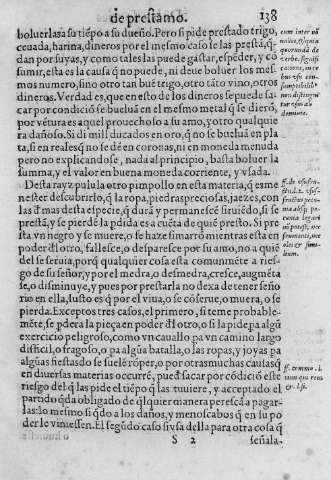 de prestamo. 138
boluerlas a su tiẽpo a su dueño. Pero si pide prestado trigo,
ceuada, harina, dineros por el mesmo caso se las prestã, q̃
dan por suyas, y como tales las puede gastar, espẽder, y cõ
sumir, esta es la causa q̃ no puede, ni deue boluer los mes-
mos numero, sino otro tan buẽ trigo, otro tãto vino, otros
dineros. Verdad es, que en esto de los dineros se puede sa-
car por condiciõ se bueluã en el mesmo metal q̃ se dierõ,
por vẽtura es aquel prouechoso a su amo, y otro qualquie
ra dañoso. Si di mil ducados en oro, q̃ no se bueluã en pla
ta, si en reales q̃ no se dẽ en coronas, ni en moneda menuda
pero no explicandose, nada al principio, basta boluer la
summa, y el valor en buena moneda corriente, y vsada.
Desta rayz pulula otro pimpollo en esta materia, q̃ es me
nester descubrirlo, q̃ la ropa, piedras preciosas, jaezes, con
las d̃mas desta especie, q̃ durã y permanescẽ siruiẽdo, si se
prestã, y se pierdẽ la pẽrdida es a cuẽta de quiẽ presto. Si pre
sta vn negro y se muere, o huye se simarrõ mientras esta en
poder dl̃ otro, fallesce, o desparesce por su amo, no a quiẽ
del se seruia, porq̃ qualquier cosa esta comunmẽte a ries-
go de su señor, y por el medra, o desmedra, cresce, augmẽta
se, o disminuye, y pues por prestarla no dexa de tener seño
rio en ella, Iusto es q̃ por el viua, o se cõserue, o muera, o se
pierda. Exceptos tres casos, el primero, si teme probable-
mẽte, se pdera la pieça en poder dl̃ otro, o si la pide pa algũ
exercicio peligroso, como vn cauallo pa vn camino largo
difficil, o fragoso, o pa algũa batalla, o las ropas, y joyas pa
algũas fiestas do se suelẽ rõper, o por otras muchas causas q̃
en diuersas materias occurrẽ, puede sacar por cõdiciõ este
riesgo del q̃ las pide el tiẽpo q̃ las tuuiere, y acceptado el
partido q̃da obligado de q̃lquier manera perescã a pagar-
las: lo mesmo si q̃do a los daños, y menoscabos q̃ en su po
der le viniessen. El segũdo caso si vsa della para otra cosa q̃
S 2 señala-
cum inter vi
uos
quorundã de
verbo. signifi
catione,
res vsu con-
sumptibilib9
non distingui
tur vsus a
domin
ff. de vsufru-
ctu.l.2. vsus-
fructus pecu
niæ absq; pe
cunia legari
nõ potest, nec
frumenti, nec
olei & simi-
lium.
ff. commo. l.
& l.si.